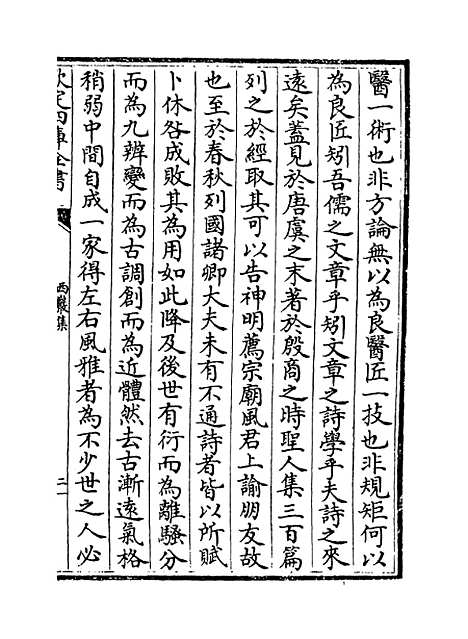 醫一術也非方論無以為良醫匠一技也非規矩何以
為良匠矧吾儒之文章乎矧文章之詩學乎夫詩之來
遠矣蓋見於唐虞之末著於殷商之時聖人集三百篇
列之於經取其可以告神明薦宗廟風君上諭朋友故
也至於春秋列國諸卿大夫未有不通詩者皆以所賦
卜休咎成敗其為用如此降及後世有衍而為離騷分
而為九辨變而為古調創而為近體然去古漸遠氣格
稍弱中間自成一家得左右風雅者為不少世之人必
欽定四庫全書
西巖集